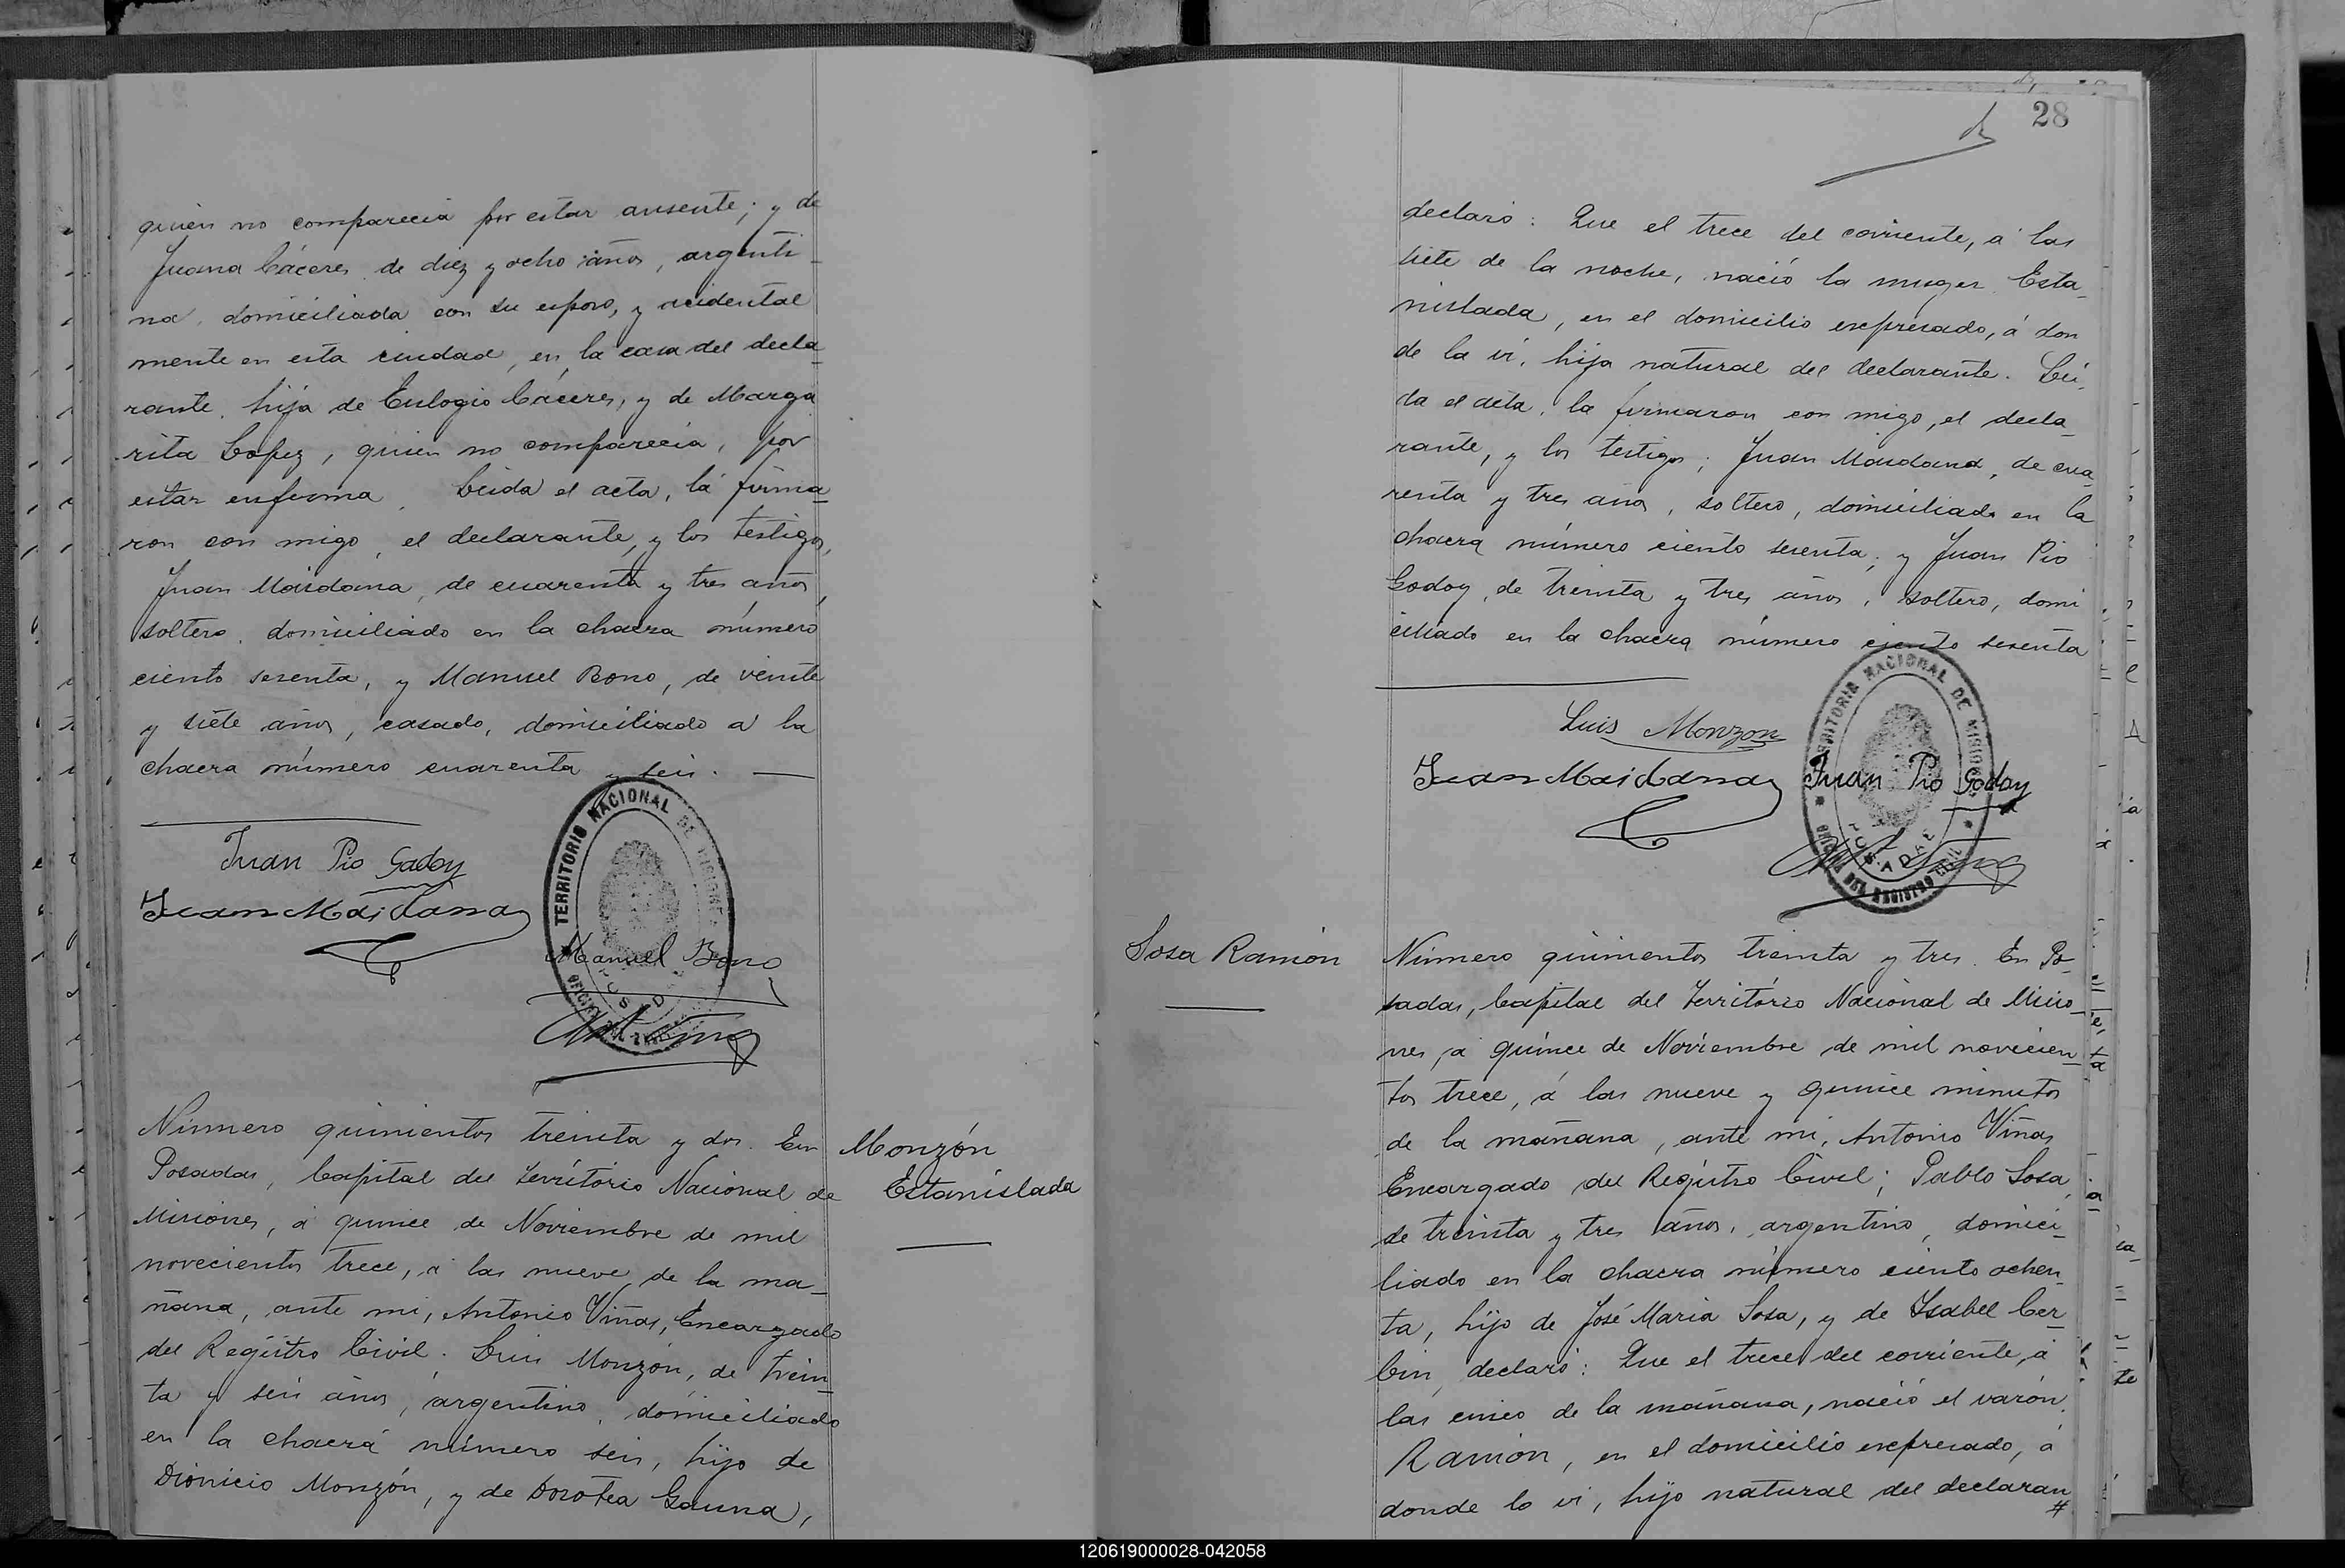 quien no comparecia por estar ausente; y de
Juana Cáceres de diez y ocho años, argenti-
na, domiciliada con su esposo, y acidental
mente en esta ciudad, en la casa del decla-
rante, hija de Eulogio Cáceres, y de Marga
rita Lopez, quien no comparecia, por
estar enferma. Leida el acta, la firma-
ron con migo, el declarante, y los testigos,
Juan Maidana, de cuarenta y tres años,
soltero, domiciliado en la chacra número
ciento sesenta, y Manuel Bono, de veinte
y siete años, casado, domiciliado a la
chacra número cuarenta y seis.
Juan Pio Godoy
Juan Maidana
Manuel Bono
TERRITORIO NACIONAL DE MISIONES
Número quinientos treinta y dos. En
Posadas, Capital del Território Nacional de
Misiones, á quince de Noviembre de mil
novecientos trece, á las nueve de la ma-
ñana, ante mi, Antonio Viñas, Encargado
del Registro Civil. Luis Monzón, de trein-
ta y seis años, argentino, domiciliado
en la chacra número seis, hijo de
Dionicio Monzón, y de Dorotea Gauna,
Monzón
Estanislada
28
declaró: Que el trece del corriente, á las
siete de la noche, nació la muger Esta-
nislada, en el domicilio expresado, á don
de la ví, hija natural del declarante. Léi-
da el acta, la firmaron con migo, el decla-
rante, y los testigos; Juan Maidana, de cua-
renta y tres años, soltero, domiciliado en la
chacra número ciento sesenta; y Juan Pio
Godoy, de treinta y tres años, soltero, domi
ciliado en la chacra número ciento sesenta
Luis Monzon
Juan Maidana
Juan Pio Godoy
TERRITORIO NACIONAL DE MISIONES
POSADAS
OFICINA DEL REGISTRO CIVIL
Sosa Ramón
Número quinientos treinta y tres. En Po-
sadas, Capital del Território Nacional de Misio-
nes, á quince de Noviembre de mil novecien-
tos trece, á las nueve y quince minutos
de la mañana, ante mi, Antonio Viñas,
Encargado del Registro Civil; Pablo Sosa,
de treinta y tres años, argentino, domici-
liado en la chacra número ciento ochen-
ta, hijo de José Maria Sosa, y de Ysabel Cer-
bin, declaró: Que el trece del corriente, á
las cinco de la mañana, nació el varón,
Ramón, en el domicilio expresado, á
donde lo ví, hijo natural del declaran
#
120619000028-042058